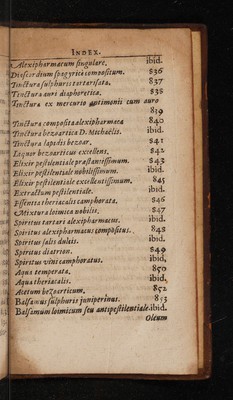 INDEX.
Alexipharmacum singulare. ibid.
Diascordium spagyricè compositum. 836
Tinctura sulphuris tartarisata. 837
Tinctura auri diaphoretica. 838
Tinctura ex mercurio antimonii cum auro
839
Tinctura composita alexipharmaca 840
Tinctura bezoartica D. Michaëlis. ibid.
Tinctura lapidis bezoar. 841
Liquor bezoarticus excellens. 842
Elixir pestilentiale præstantissimum. 843
Elixir pestilentiale nobilissimum. ibid.
Elixir pestilentiale excellentissimum. 845
Extractum pestilentiale. ibid.
Essentia theriacalis camphorata. 846
Mixtura loimica nobilis. 847
Spiritus tartari alexipharmacus. ibid.
Spiritus alexipharmacus compositus. 848
Spiritus salis dulcis. ibid.
Spiritus diatrion. 849
Spiritus vini camphoratus. ibid.
Aqua temperata. 850
Aqua theriacalis. ibid.
Acetum bezoarticum. 852
Balsamus sulphuris juniperinus. 853
Balsamum loimicum seu antipestilentiale. ibid.
Oleum